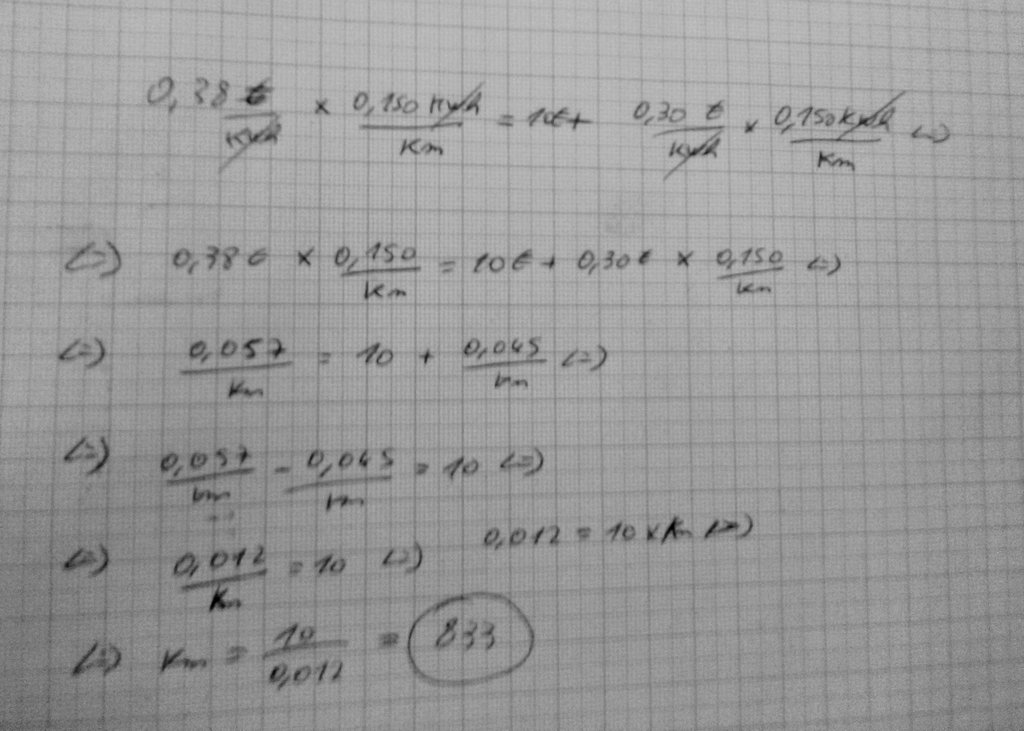 0,38 € / kwh × 0,150 kwh / Km = 10€ + 0,30 € / kwh × 0,150 kwh / Km <=>
<=> 0,38 € × 0,150 / Km = 10 € + 0,30 € × 0,150 / Km <=>
<=> 0,057 / Km = 10 + 0,045 / Km <=>
<=> 0,057 / Km - 0,045 / Km = 10 <=>
<=> 0,012 / Km = 10 <=> 0,012 = 10 × Km <=>
<=> Km = 10 / 0,012 = 833